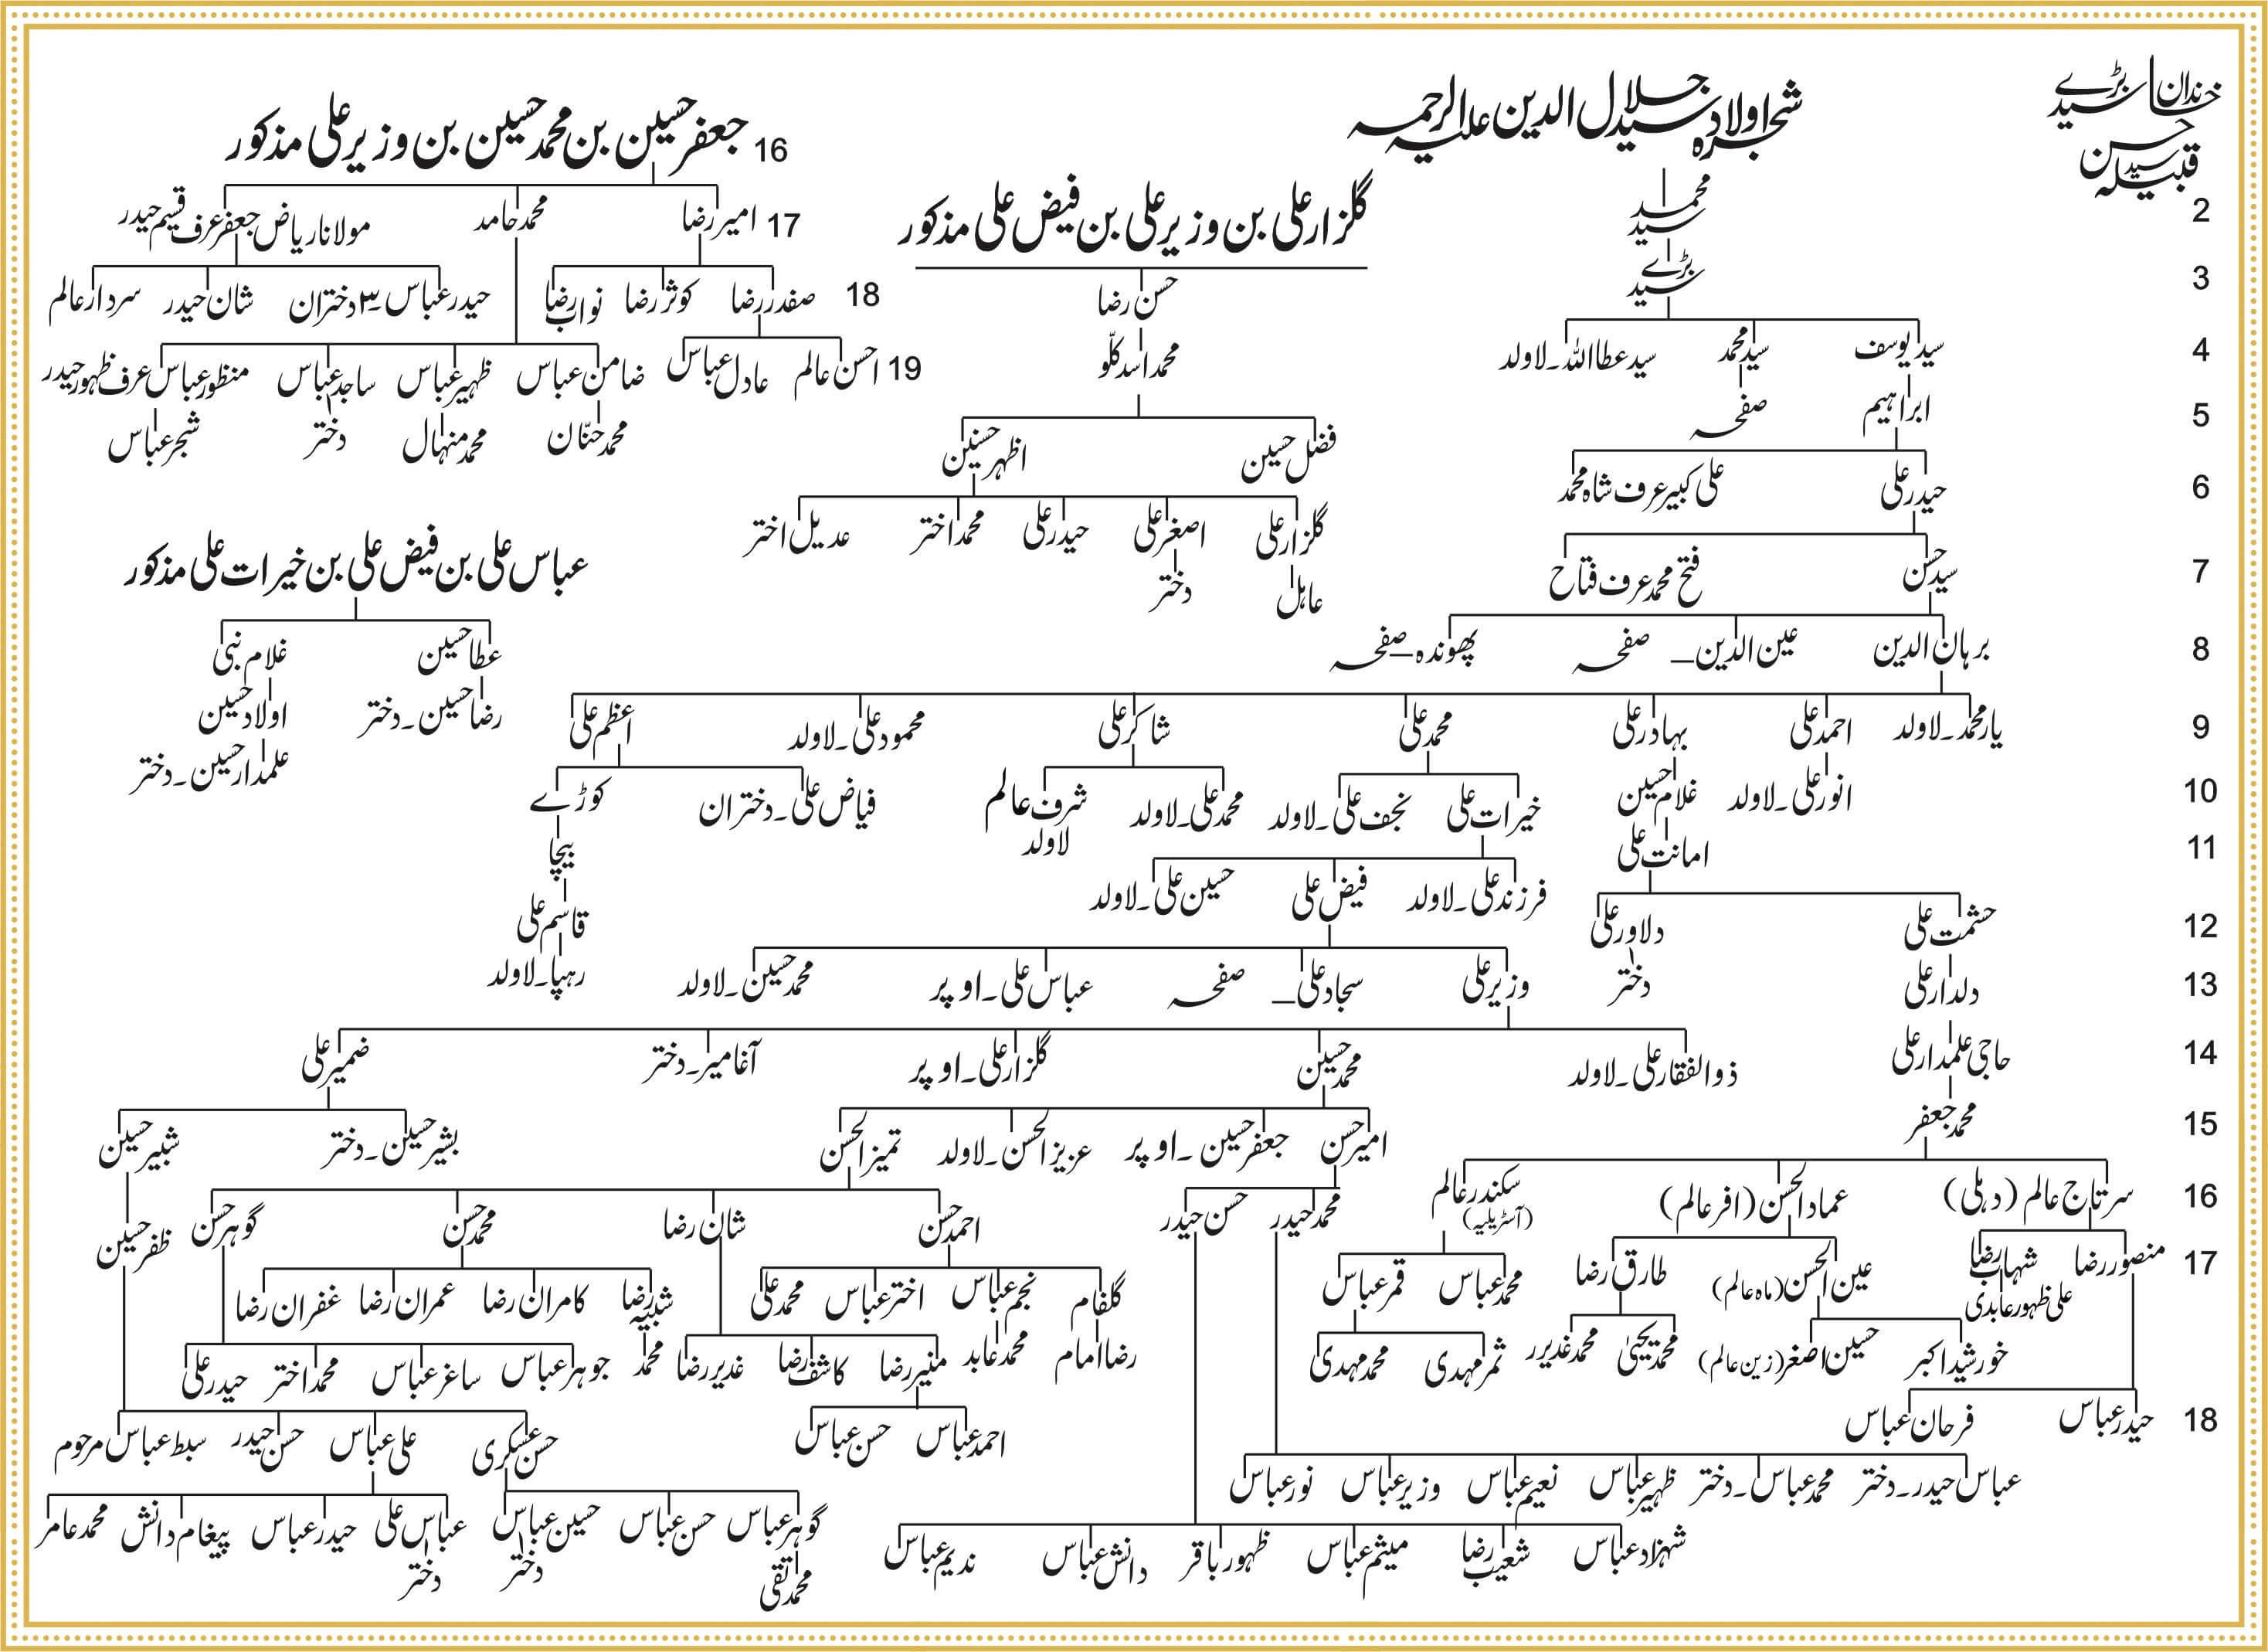 خاندان سید بڑے
قبیلہ سید حسن
شجرہ اولاد سید جلال الدین علیہ الرحمہ
2
سید محمد
3
سید بڑے
4
سید یوسف
سید محمد
سید عطا اللہ۔لاولد
5
ابراہیم
صفحہ
6
حیدر علی
علی کبیر عرف شاہ محمد
7
سید حسن
فتح محمد عرف فتاح
8
برہان الدین
عین الدین_ صفحہ
پھوندہ_صفحہ
9
یار محمد۔لاولد
احمد علی
بہادر علی
محمد علی
شاکر علی
محمود علی۔لاولد
اعظم علی
10
انور علی۔لاولد
غلام حسین
خیرات علی
نجف علی۔لاولد
محمد علی۔لاولد
شرف عالم
لاولد
فیاض علی۔دختران
کوڑے
11
امانت علی
بیچا
12
حشمت علی
دلاور علی
فرزند علی۔لاولد
فیض علی
حسین علی۔لاولد
قاسم علی
13
دلدار علی
دختر
وزیر علی
سجاد علی_ صفحہ
عباس علی۔اوپر
محمد حسین۔لاولد
رہپا۔لاولد
14
حاجی علمدار علی
ذوالفقار علی۔لاولد
محمد حسین
گلزار علی۔اوپر
آغا میر۔دختر
ضمیر علی
15
محمد جعفر
امیر حسن
جعفر حسین۔اوپر
عزیز الحسن۔لاولد
تمیز الحسن
بشیر حسین۔دختر
شبیر حسین
16
سرتاج عالم (دہلی)
عماد الحسن (افر عالم)
سکندر عالم
(آسٹریلیہ)
محمد حیدر
حسن حیدر
احمد حسن
شان رضا
محمد حسن
گوہر حسن
ظفر حسین
17
منصور رضا
شہاب رضا
علی ظہور عابدی
عین الحسن (ماہ عالم)
طارق رضا
محمد عباس
قمر عباس
گلفام
نجم عباس
اختر عباس
محمد علی
شبیہ رضا
کامران رضا
عمران رضا
غفران رضا
خورشید اکبر
حسین اصغر (زین عالم)
محمد یحییٰ
محمد غدیر
ثمر مہدی
محمد مہدی
رضا امام
محمد عابد
منیر رضا
کاشف رضا
غدیر رضا
محمد
جوہر عباس
ساغر عباس
محمد اختر
حیدر علی
18
حیدر عباس
فرحان عباس
احمد عباس
حسن عباس
حسن عسکری
علی عباس
حسن حیدر
سبط عباس مرحوم
عباس حیدر۔دختر
محمد عباس۔دختر
ظہیر عباس
نعیم عباس
وزیر عباس
نور عباس
گوہر عباس
حسن عباس
حسین عباس
عباس علی
حیدر عباس
پیغام دانش
محمد عامر
شہزاد عباس
شعیب رضا
میثم عباس
ظہور باقر
دانش عباس
ندیم عباس
محمد تقی
دختر
دختر
گلزار علی بن وزیر علی بن فیض علی مذکور
حسن رضا
محمد اسد کلّو
فضل حسین
اظہر حسنین
گلزار علی
اصغر علی
حیدر علی
محمد اختر
عدیل اختر
عابل
دختر
16 جعفر حسین بن محمد حسین بن وزیر علی مذکور
17 امیر رضا
محمد حامد
مولانا ریاض جعفر عرف قسیم حیدر
18 صفدر رضا
کوثر رضا
نواب رضا
حیدر عباس۔۳ دختران
شان حیدر
سردار عالم
19 احسن عالم
عادل عباس
ضامن عباس
ظہیر عباس
ساجد عباس
منظور عباس عرف ظہور حیدر
محمد حنّان
محمد منہال
دختر
شجر عباس
عباس علی بن فیض علی بن خیرات علی مذکور
عطا حسین
غلام نبی
رضا حسین۔دختر
اولاد حسین
علمدار حسین۔دختر